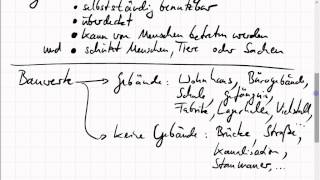 • selbstständig benutzbar
• überdeckt
• kann von Menschen betreten werden
und • schützt Menschen, Tiere oder Sachen
Bauwerke → Gebäude: Wohnhaus, Bürogebäude,
Schule, Gefängnis,
Fabrik, Lagerhalle, Viehstall, ...
→ keine Gebäude: Brücke, Straße,
Kanalisation,
Staumauer, ...